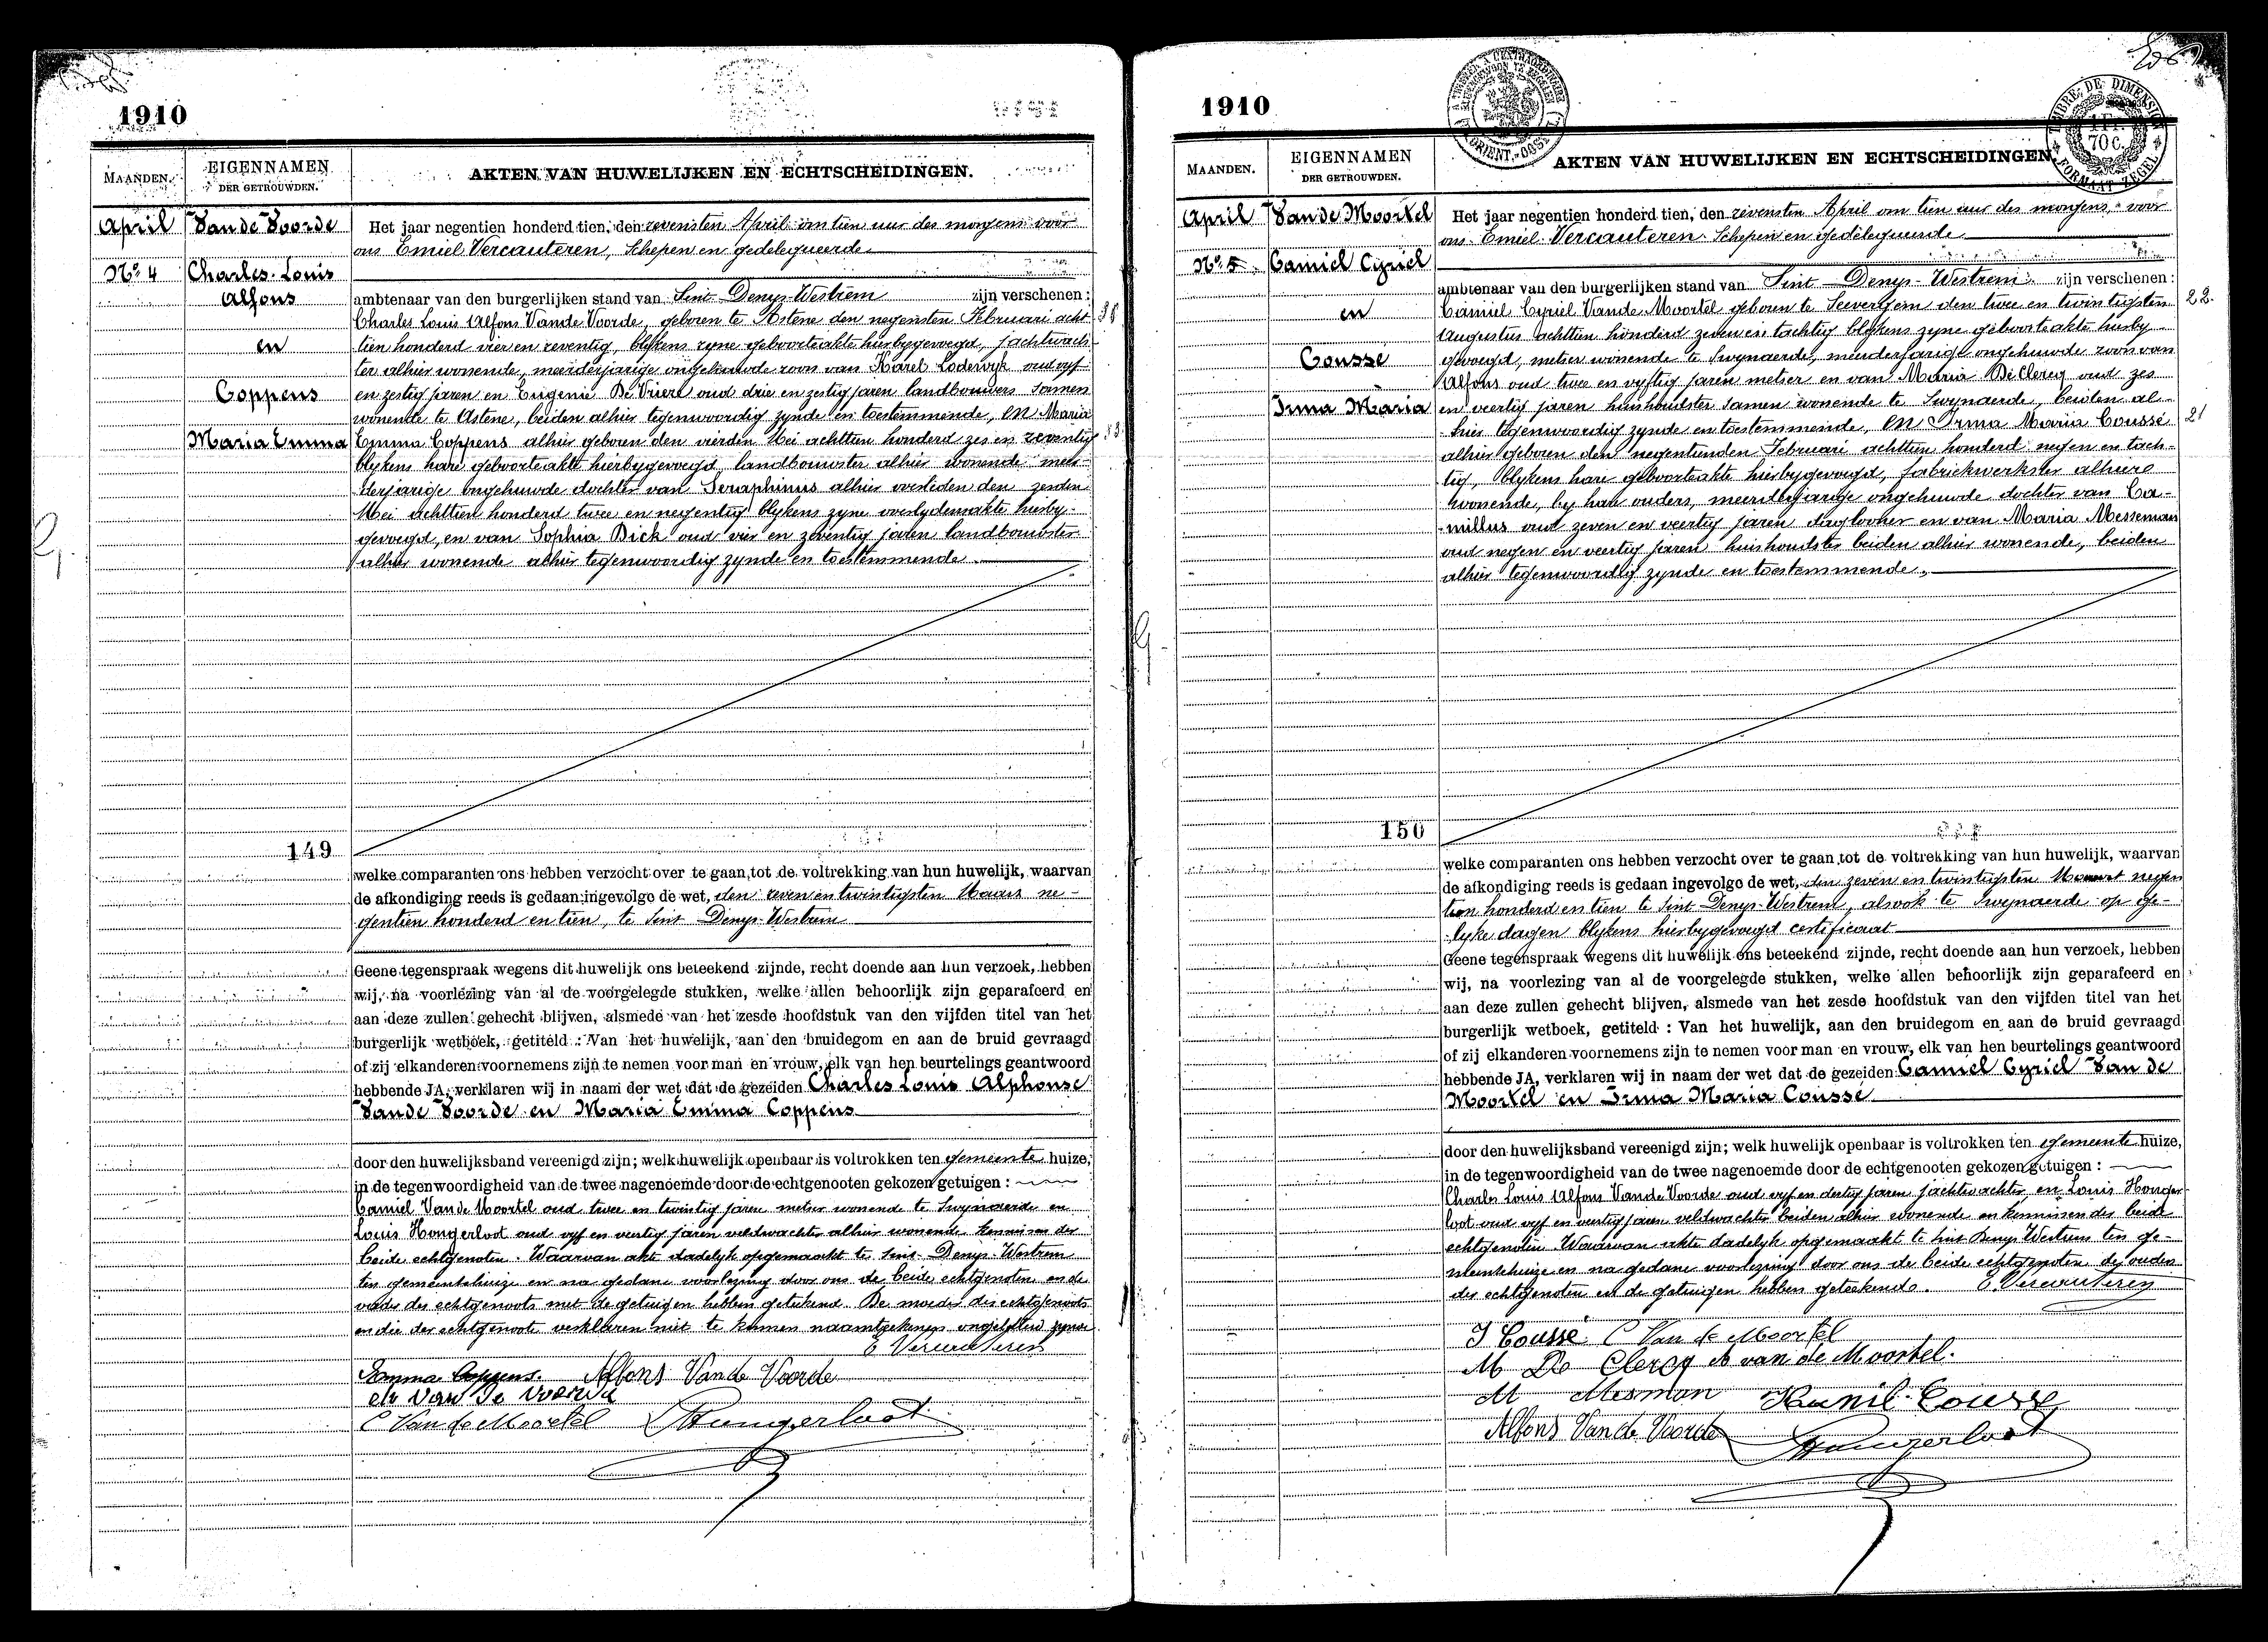 1910
MAANDEN.
EIGENNAMEN
DER GETROUWDEN.
AKTEN VAN HUWELIJKEN EN ECHTSCHEIDINGEN.
April
Van de Voorde
No. 4
Charles Louis
Alfons
en
Coppens
Maria Emma
Het jaar negentien honderd tien, den zevensten April om tien uur des morgens voor
ons Emiel Vercauteren, Schepen en gedelegueerde
ambtenaar van den burgerlijken stand van Sint Denys-Westrem zijn verschenen:
Charles Louis Alfons Van de Voorde, geboren te Astene den negensten Februari acht-
tien honderd vier en zeventig, blykens zyne geboorteakte hierbygevoegd, jachtwach-
ter alhier wonende, meerderjarige ongehuwde zoon van Karel Lodewyk oud vyf
en zestig jaren en Eugenie De Vriere oud drie en zestig jaren landbouwers samen
wonende te Astene, beiden alhier tegenwoordig zynde en toestemmende, en Maria
Emma Coppens alhier geboren den vierden Mei achttien honderd zes en zeventig
blykens hare geboorteakte hierbygevoegd, landbouwster alhier wonende meer-
derjarige ongehuwde dochter van Seraphinus alhier overleden den zesden
Mei achttien honderd twee en negentig blykens zyne overlydensakte hierby-
gevoegd, en van Sophia Dick oud vier en zeventig jaren landbouwster
alhier wonende alhier tegenwoordig zynde en toestemmende
149
welke comparanten ons hebben verzocht over te gaan tot de voltrekking van hun huwelijk, waarvan
de afkondiging reeds is gedaan ingevolge de wet, den zeven en twintigsten Maart ne-
gentien honderd en tien, te Sint Denys-Westrem
Geene tegenspraak wegens dit huwelijk ons beteekend zijnde, recht doende aan hun verzoek, hebben
wij, na voorlezing van al de voorgelegde stukken, welke allen behoorlijk zijn geparafeerd en
aan deze zullen gehecht blijven, alsmede van het zesde hoofdstuk van den vijfden titel van het
burgerlijk wetboek, getiteld : Van het huwelijk, aan den bruidegom en aan de bruid gevraagd
of zij elkanderen voornemens zijn te nemen voor man en vrouw, elk van hen beurtelings geantwoord
hebbende JA, verklaren wij in naam der wet dat de gezeiden Charles Louis Alphonse
Van de Voorde en Maria Emma Coppens
door den huwelijksband vereenigd zijn; welk huwelijk openbaar is voltrokken ten gemeente huize,
in de tegenwoordigheid van de twee nagenoemde door de echtgenooten gekozen getuigen :
Camiel Van de Moortel oud twee en twintig jaren metser wonende te Swynaerde en
Louis Hongerloot oud vyf en veertig jaren veldwachter alhier wonende kennissen der
beide echtgenoten. Waarvan akte dadelyk opgemaakt te Sint-Denys-Westrem
ten gemeentehuize en na gedane voorlezing door ons de beide echtgenoten en de
vader des echtgenoots met de getuigen hebben geteekend. De moeder des echtgenoots
en die der echtgenoote verklaren niet te kunnen naamteekenen ongeletterd zynde
E Vercauteren
Emma Coppens. Alfons Van de Voorde
Van de Voorde
C Van de Moortel Hongerloot
1910
MAANDEN.
EIGENNAMEN
DER GETROUWDEN.
AKTEN VAN HUWELIJKEN EN ECHTSCHEIDINGEN.
TIMBRE DE DIMENSION
1 Fr.
70 C.
FORMAAT ZEGEL
April
Van de Moortel
No. 5
Camiel Cyriel
en
Cousse
Irma Maria
Het jaar negentien honderd tien, den zevensten April om tien uur des morgens, voor
ons Emiel Vercauteren Schepen en gedelegueerde
ambtenaar van den burgerlijken stand van Sint Denys-Westrem zijn verschenen:
Camiel Cyriel Van de Moortel geboren te Seevergem den twee en twintigsten
22.
Augustus achttien honderd zeven en tachtig blykens zyne geboorteakte hierby
gevoegd, metser wonende te Swynaerde, minderjarige ongehuwde zoon van
Alfons oud twee en vyftig jaren metser en van Maria De Clercq oud zes
en veertig jaren huishoudster samen wonende te Swynaerde, beiden al-
hier tegenwoordig zynde en toestemmende, en Irma Maria Coussé
21
alhier geboren den negentienden Februari achttien honderd negen en tach-
tig, blykens hare geboorteakte hierbygevoegd, fabriekwerkster alhier
wonende, by hare ouders, meerderjarige ongehuwde dochter van Ca-
millus oud zeven en veertig jaren daglooner en van Maria Messeman
oud negen en veertig jaren huishoudster beiden alhier wonende, beiden
alhier tegenwoordig zynde en toestemmende,
150
welke comparanten ons hebben verzocht over te gaan tot de voltrekking van hun huwelijk, waarvan
de afkondiging reeds is gedaan ingevolge de wet, den zeven en twintigsten Maart negen
tien honderd en tien te Sint Denys-Westrem, alsook te Swynaerde op ge-
lyke dagen blykens hierbygevoegd certificaat
Geene tegenspraak wegens dit huwelijk ons beteekend zijnde, recht doende aan hun verzoek, hebben
wij, na voorlezing van al de voorgelegde stukken, welke allen behoorlijk zijn geparafeerd en
aan deze zullen gehecht blijven, alsmede van het zesde hoofdstuk van den vijfden titel van het
burgerlijk wetboek, getiteld : Van het huwelijk, aan den bruidegom en aan de bruid gevraagd
of zij elkanderen voornemens zijn te nemen voor man en vrouw, elk van hen beurtelings geantwoord
hebbende JA, verklaren wij in naam der wet dat de gezeiden Camiel Cyriel Van de
Moortel en Irma Maria Coussé
door den huwelijksband vereenigd zijn; welk huwelijk openbaar is voltrokken ten gemeente huize,
in de tegenwoordigheid van de twee nagenoemde door de echtgenooten gekozen getuigen :
Charles Louis Alfons Van de Voorde oud vyf en dertig jaren jachtwachter en Louis Honger
loot oud vyf en veertig jaren veldwachter beiden alhier wonende en kennissen der beide
echtgenoten. Waarvan akte dadelyk opgemaakt te Sint Denys Westrem ten ge-
meentehuize en na gedane voorlezing door ons de beide echtgenoten de ouders
der echtgenoten en de getuigen hebben geteekend. E Vercauteren
I Coussé C Van de Moortel
M De Clercq A van de Moortel.
M Mesman Kamil Cousse
Alfons Van de Voorde Hongerloot